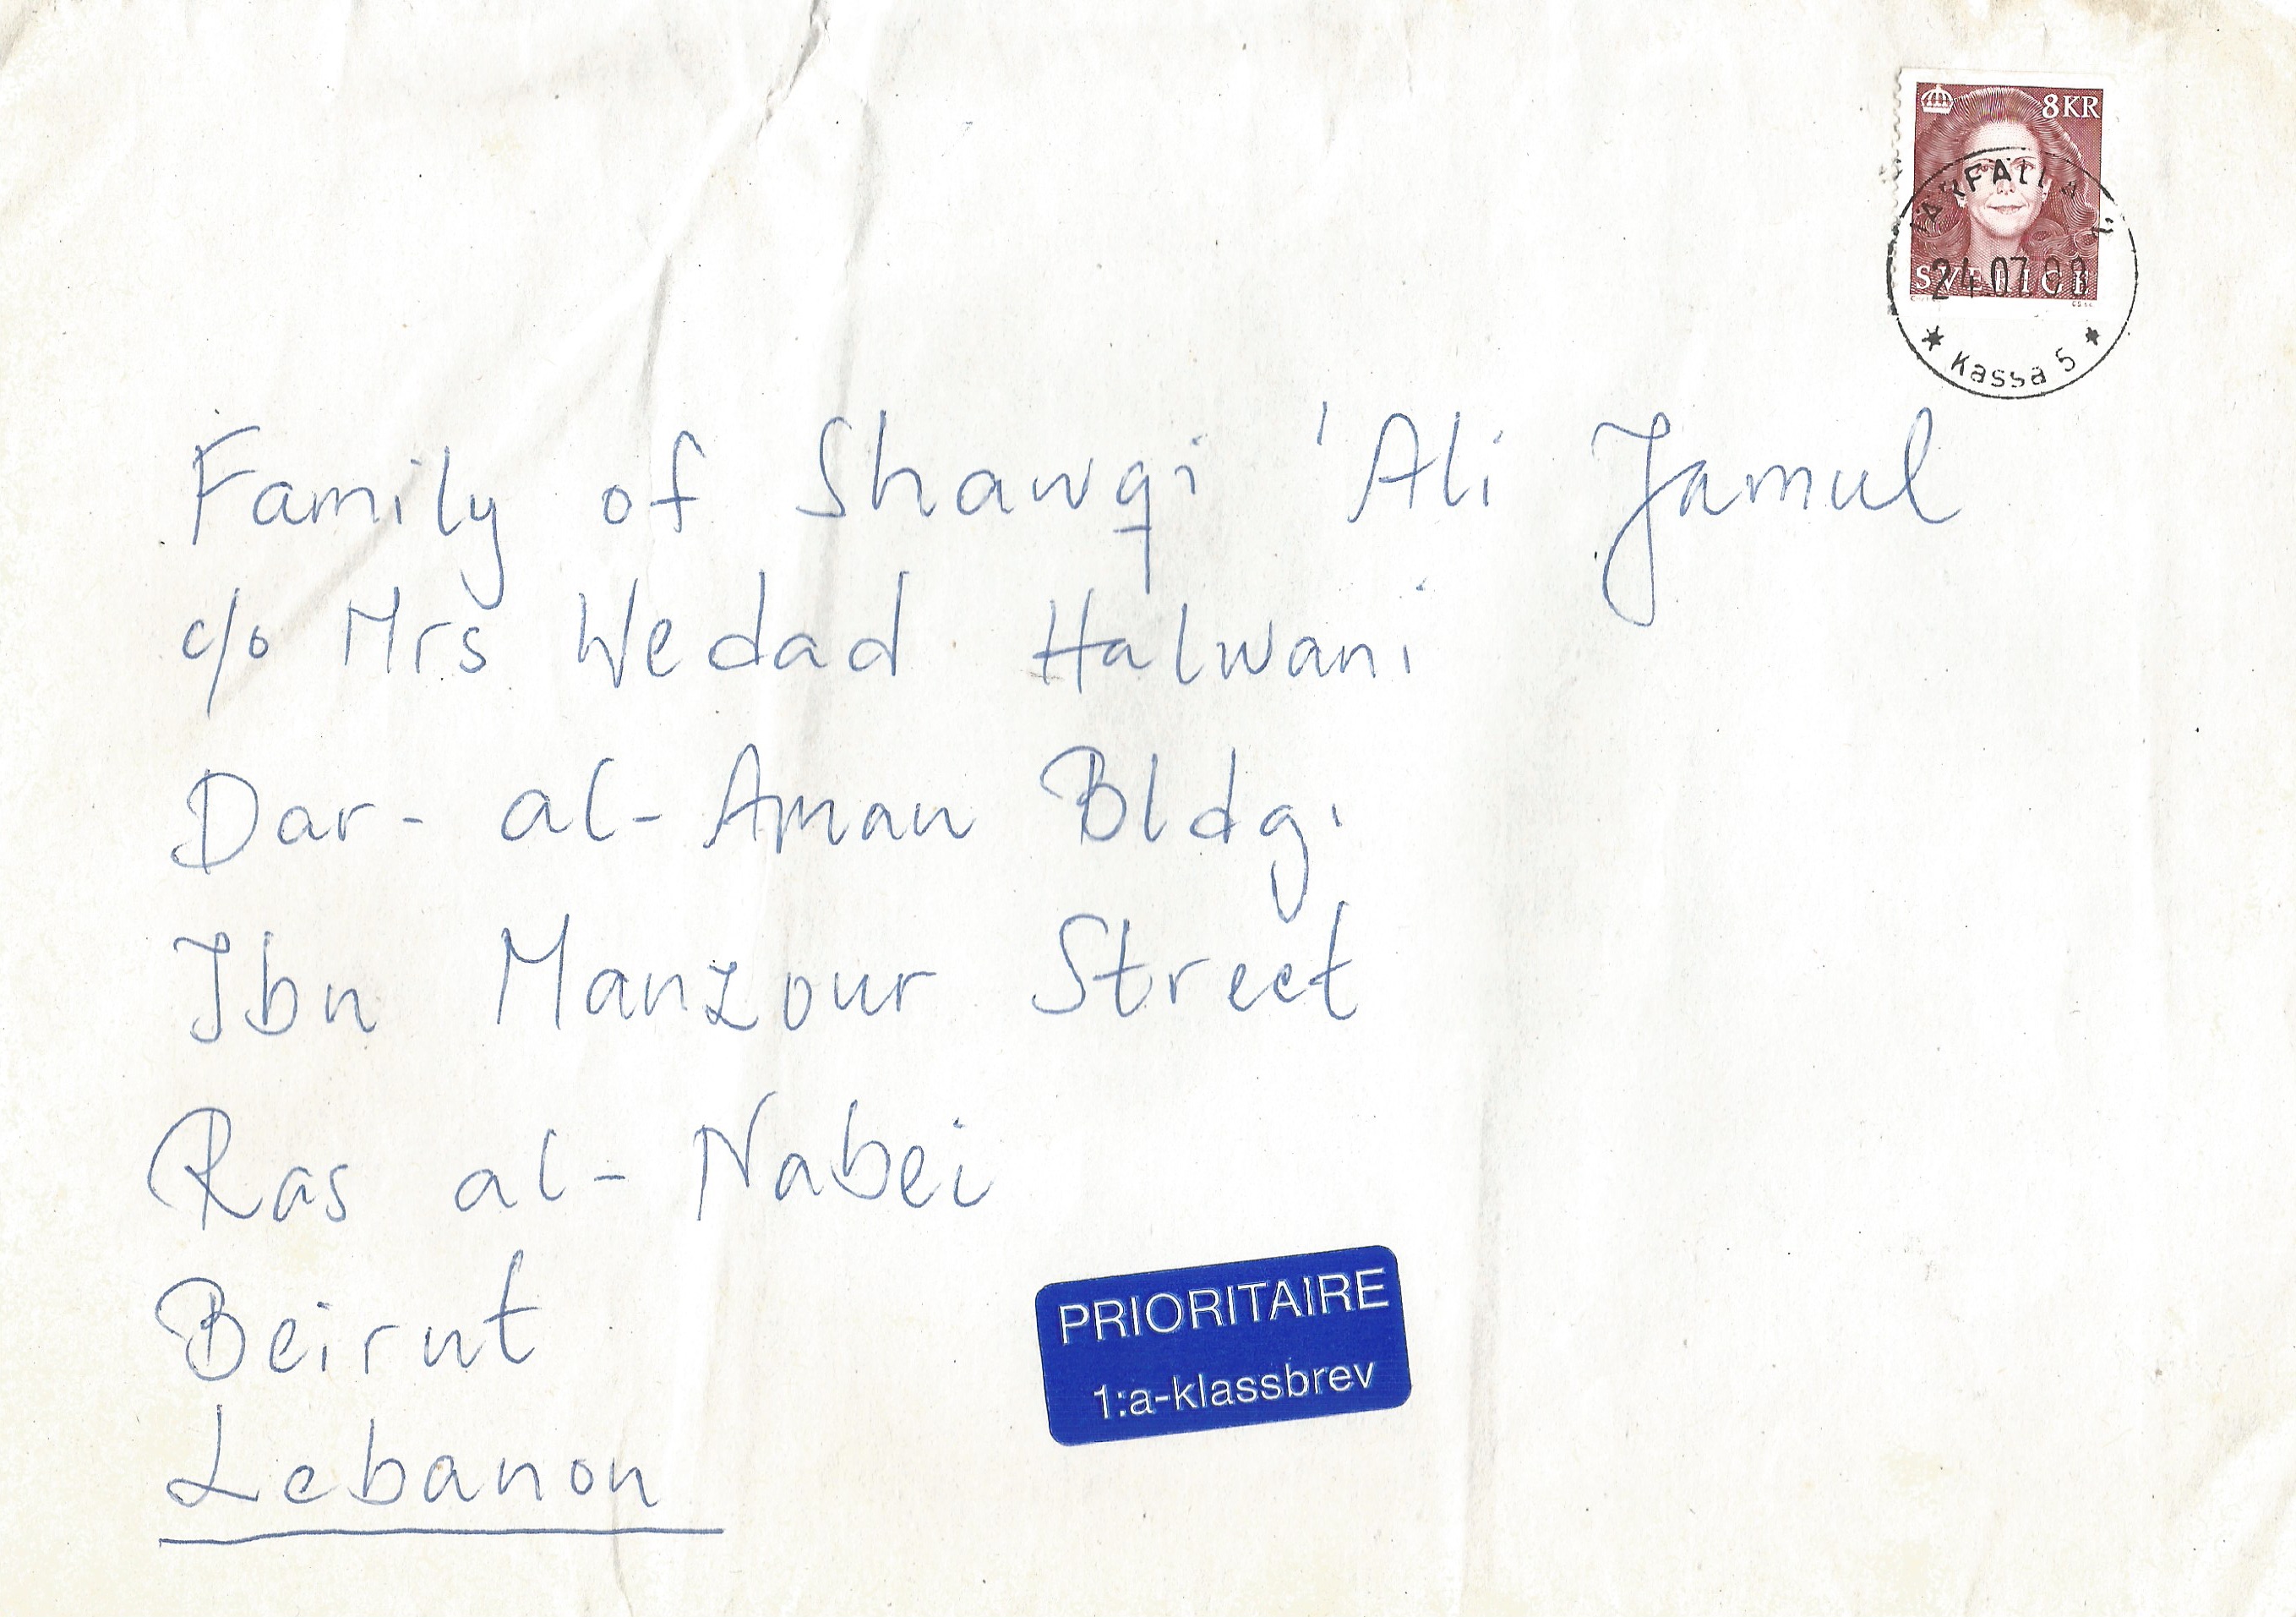 8KR
SVERIGE
24.07.00
* Kassa 5 *
Family of Shawqi 'Ali Jamul
c/o Mrs Wedad Halwani
Dar-al-Aman Bldg.
Ibn Manzour Street
Ras al-Nabei
Beirut
Lebanon
PRIORITAIRE
1:a-klassbrev